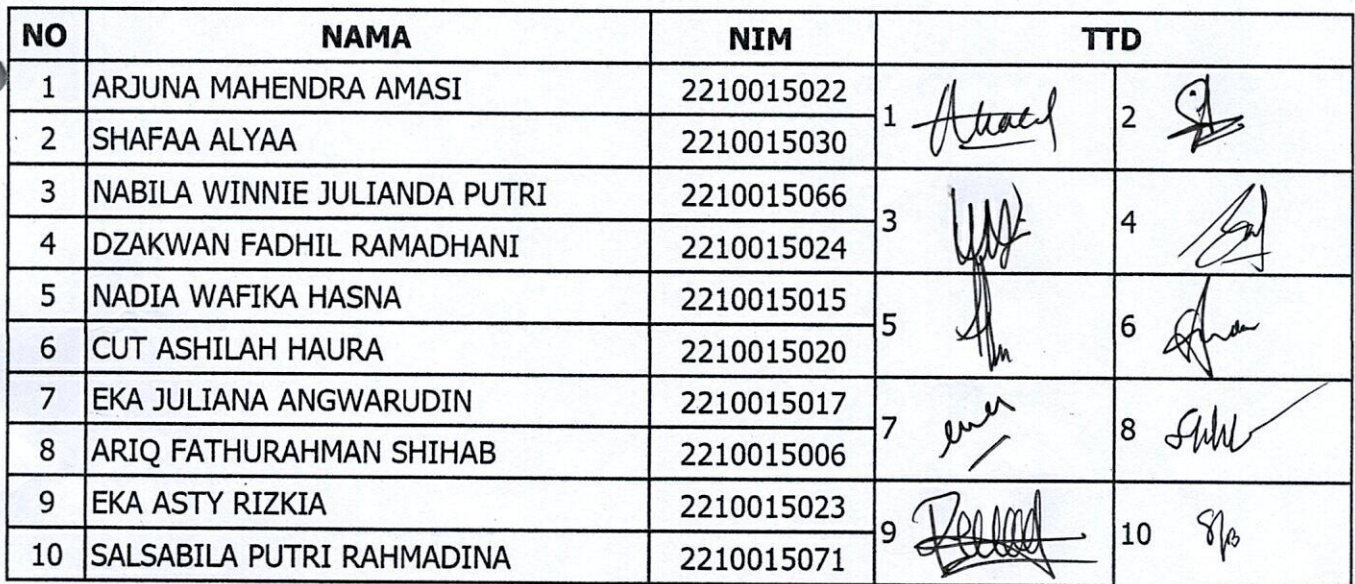 NO NAMA NIM TTD
1 ARJUNA MAHENDRA AMASI 2210015022
1 2
2 SHAFAA ALYAA 2210015030
3 NABILA WINNIE JULIANDA PUTRI 2210015066
3 4
4 DZAKWAN FADHIL RAMADHANI 2210015024
5 NADIA WAFIKA HASNA 2210015015
5 6
6 CUT ASHILAH HAURA 2210015020
7 EKA JULIANA ANGWARUDIN 2210015017
7 8
8 ARIQ FATHURAHMAN SHIHAB 2210015006
9 EKA ASTY RIZKIA 2210015023
9 10
10 SALSABILA PUTRI RAHMADINA 2210015071